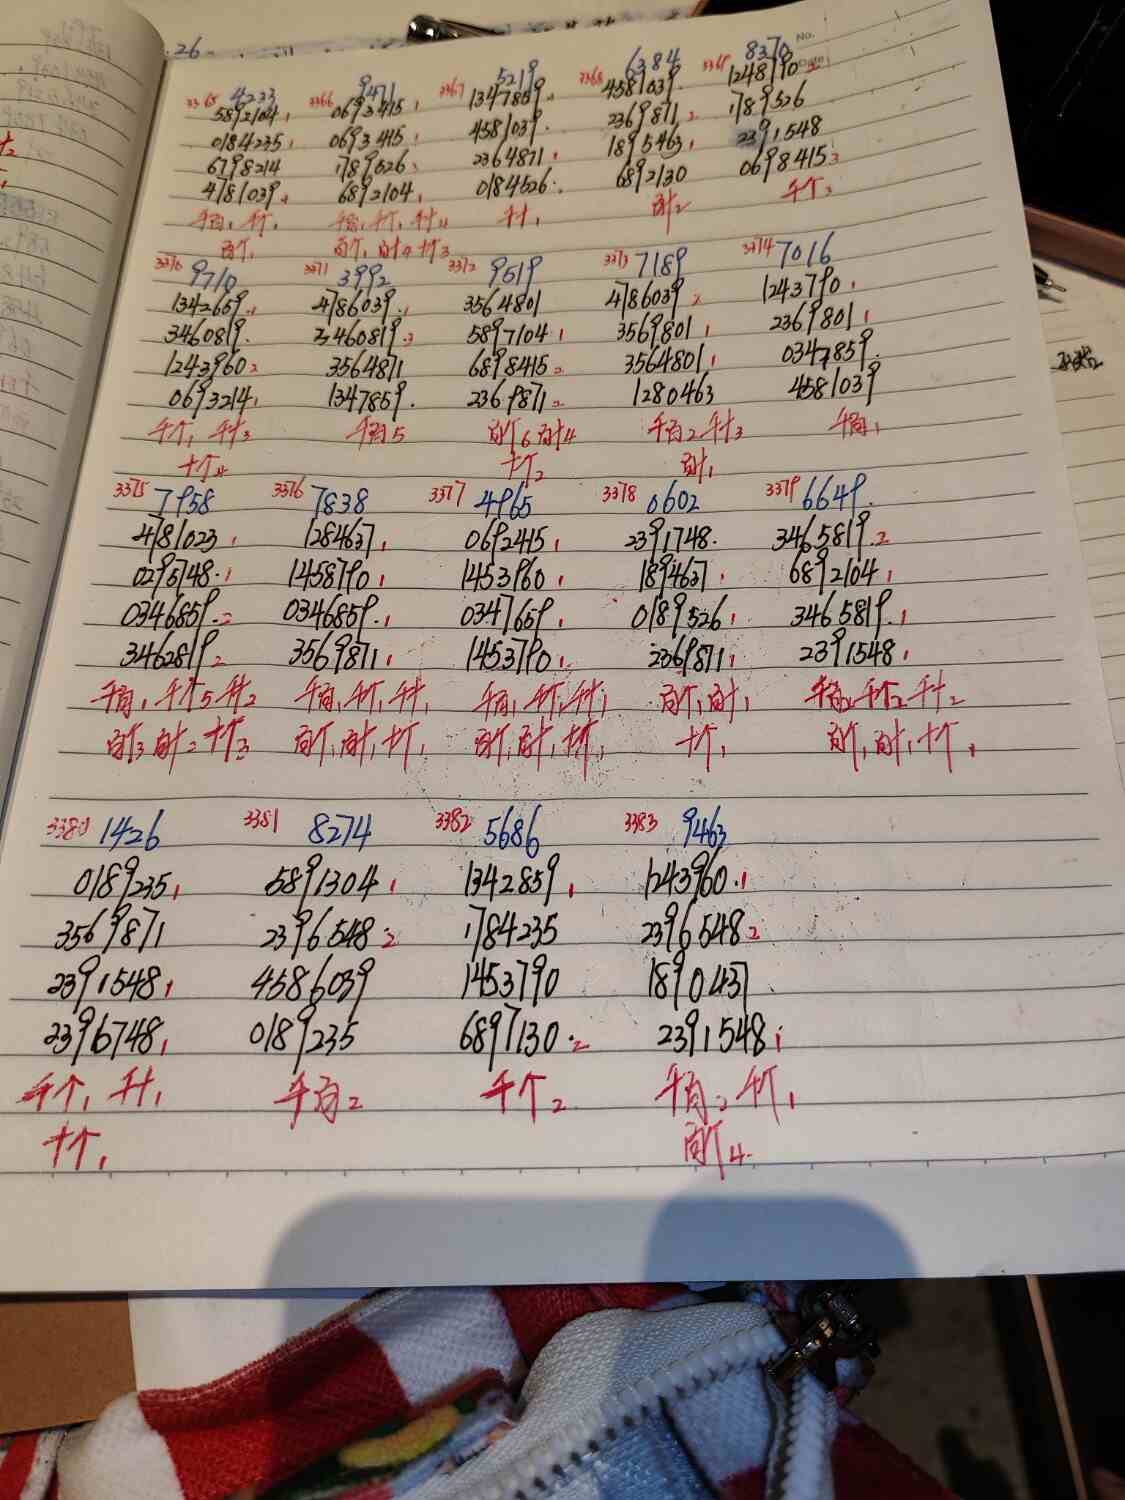 26
3365 4233 3366 9471 3367 5219 3368 6384 8370 No.
5892104 1 0693415 1 1347859 4581039 1248790 2
0184235 1 0693415 1 4581039 2369871 2 1789526
6798214 1789526 2364871 1 1895463 1 2391548
4781039 6892104 1 0184526 6892130 0698415 3
千百1 千个1 千百1 千个1 千十 十十1 百十2 千个2
百个1 百个1 百十 十个3
3370 9710 3371 3992 3372 9519 3373 7189 3374 7016
1342659 4786039 3564801 4786039 2 1243790 1
3460819 3460819 3 5897104 1 3569801 1 2369801 1
1243960 2 3564871 6898415 2 3564801 1 0347859
0693214 1 1347859 2369871 2 1280463 4581039
千个1 千十3 千百5 百个6 百十4 千百2 千十3 千百1
十个4 十个2 百十1
3375 7958 3376 7838 3377 4965 3378 0602 3379 6649
4781023 1 1284637 1 0692415 1 2391748 3465819 2
0296748 1 1458790 1 1453960 1 1894637 1 6892104 1
0346859 2 0346859 1 0347659 1 0189526 1 3465819 1
3462819 2 3569871 1 1453790 1 2369871 1 2391548 1
千百1 千个5 千十2 千百1 千个1 千十1 千百1 千个1 千十1 百个1 百十1 千百2 千个2 千十2
百个3 百十2 十个3 百个1 百十1 十个1 百个1 百十1 十个1 十个1 百个1 百十1 十个1
3380 1426 3381 8274 3382 5686 3383 9463
0189235 1 5891304 1 1342859 1 1243960 1
3569871 2396548 2 1784235 2396548 2
2391548 1 4586039 1453790 1890437
2396748 1 0189235 6897130 2 2391548 1
千个1 千十1 千百2 千个2 千百2 千个1
十个1 百个4